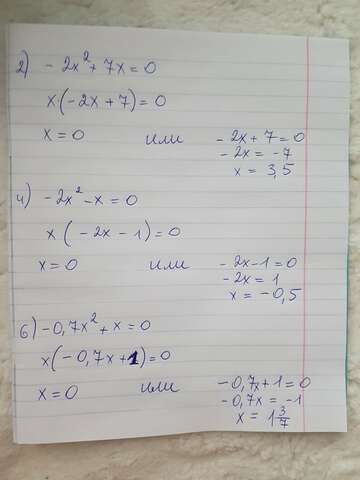 2) - 2x² + 7x = 0
x(-2x + 7) = 0
x = 0 или - 2x + 7 = 0
- 2x = -7
x = 3,5
4) - 2x² - x = 0
x ( - 2x - 1) = 0
x = 0 или - 2x - 1 = 0
- 2x = 1
x = - 0,5
6) - 0,7x² + x = 0
x(- 0,7x + 1) = 0
x = 0 или - 0,7x + 1 = 0
- 0,7x = -1
x = 1 3/7